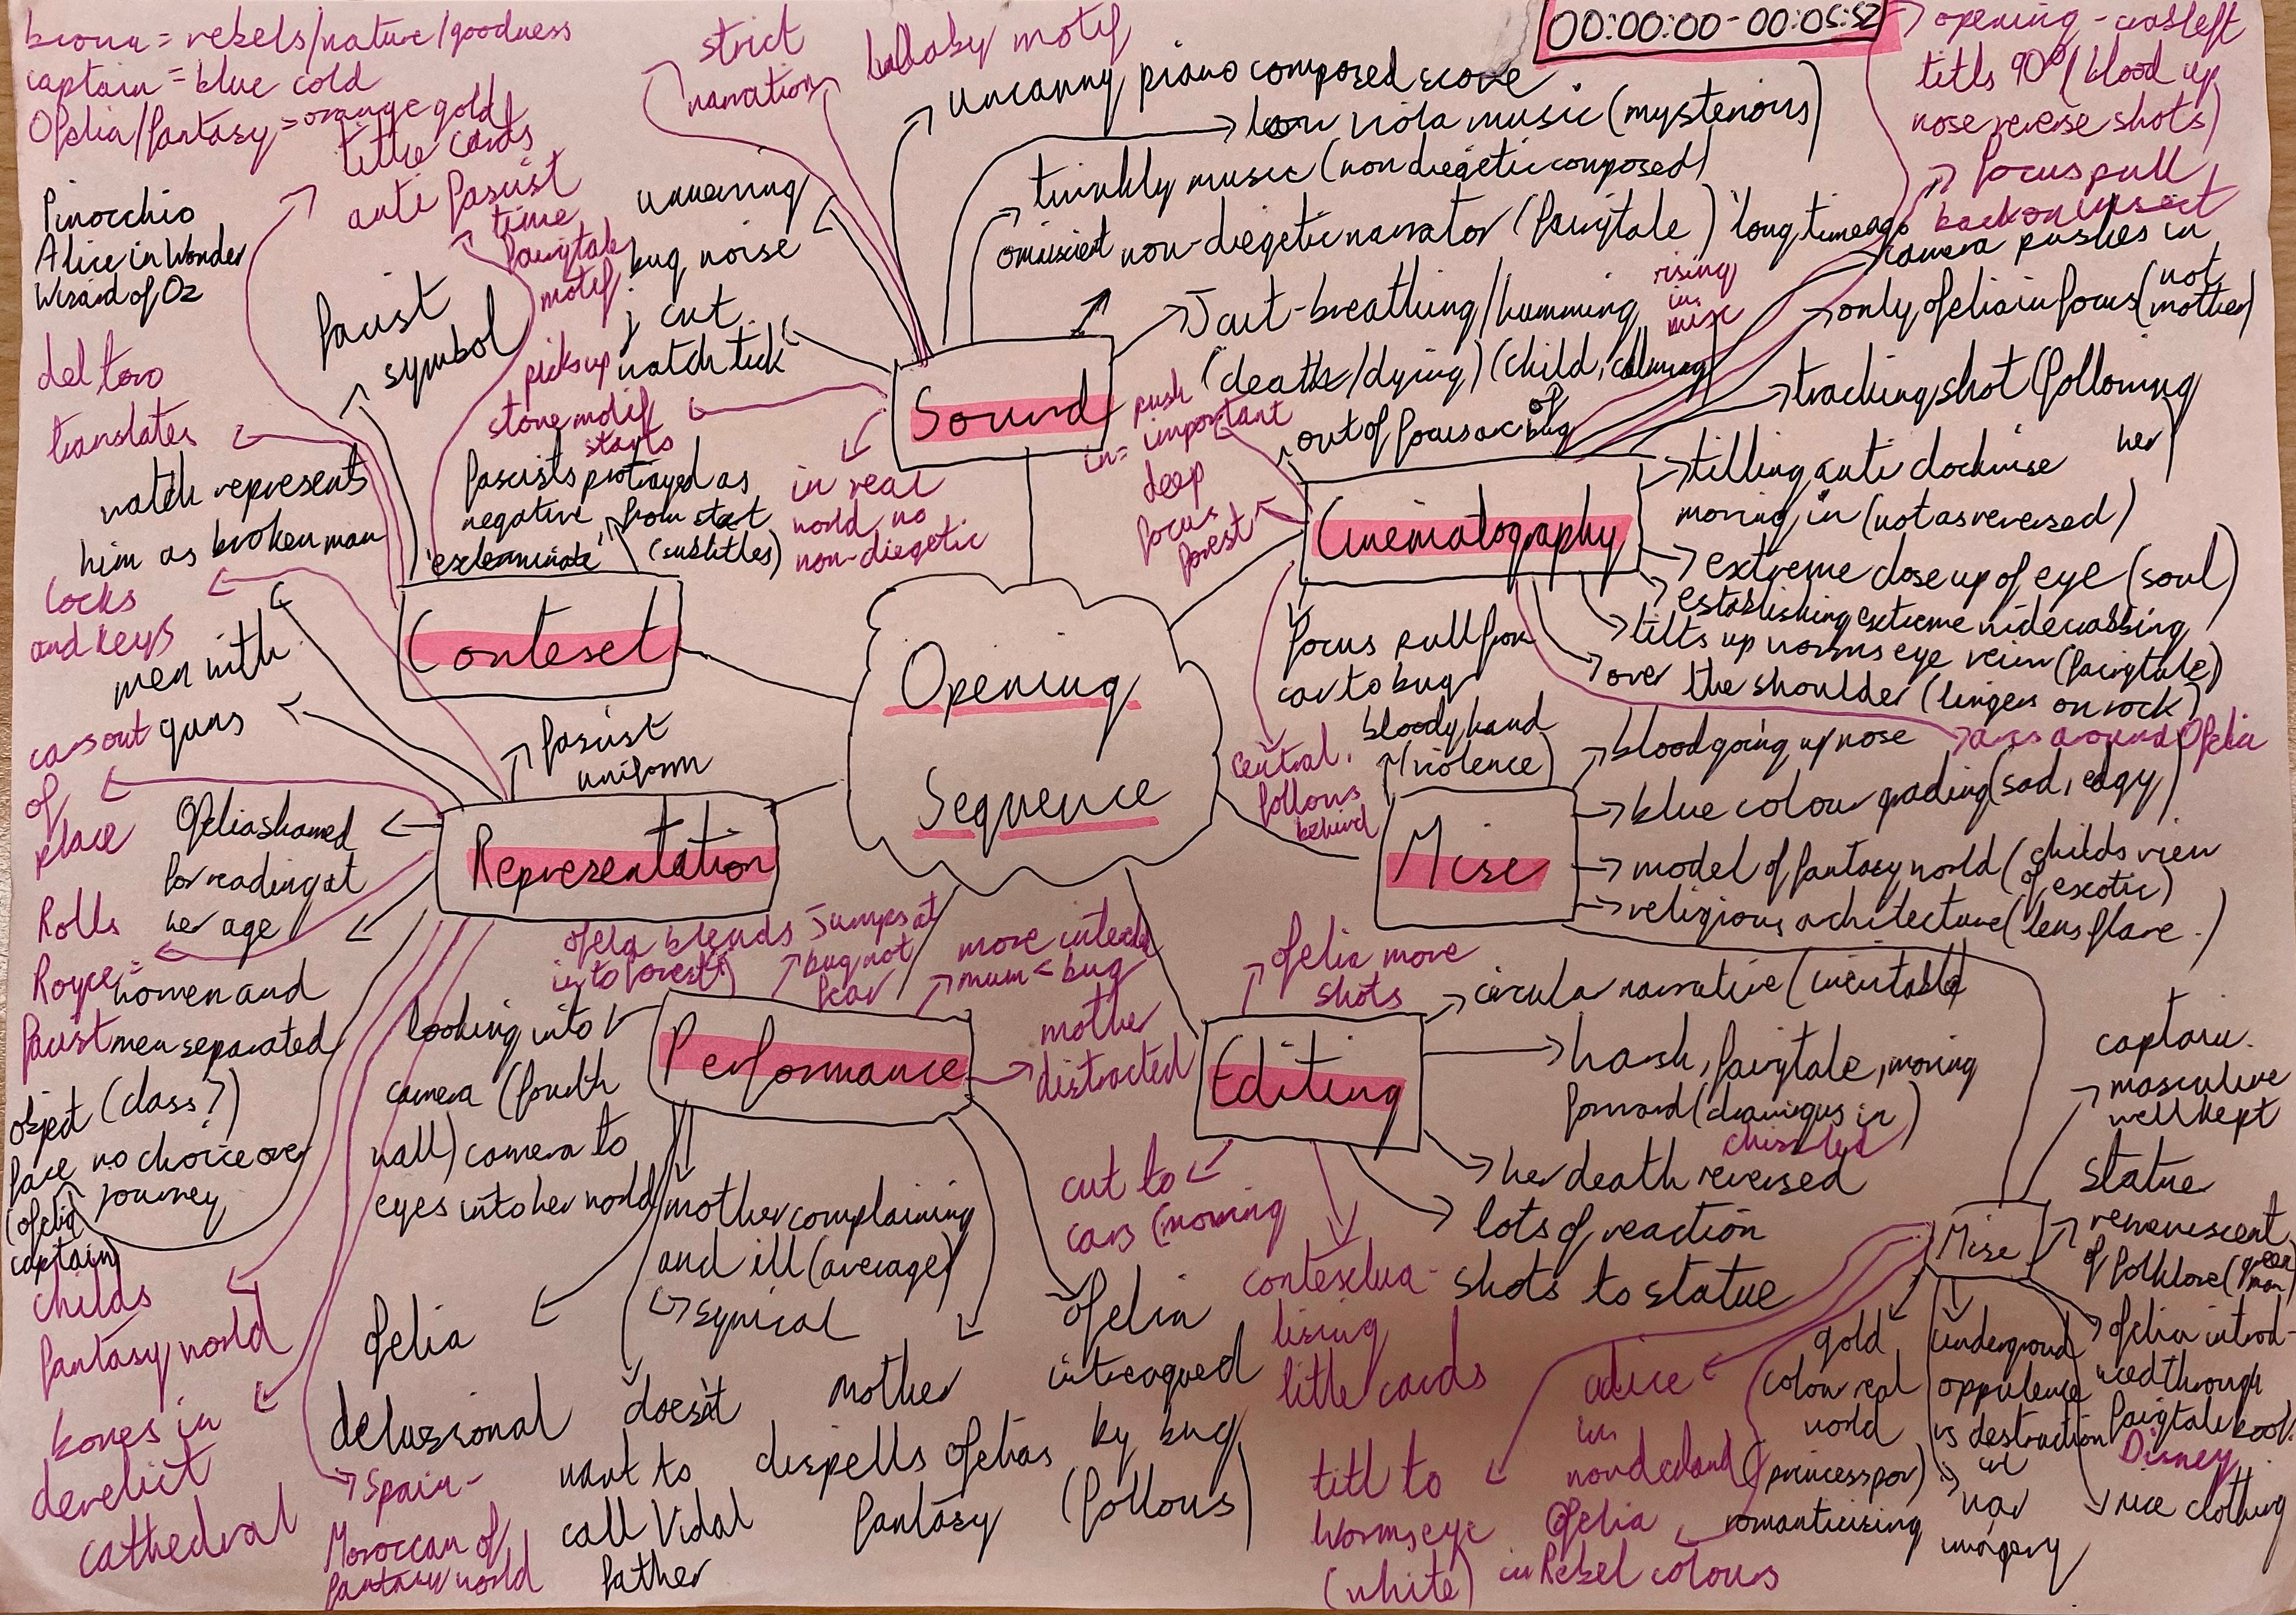 00:00:00-00:05:52
brown = rebels/nature/goodness
captain = blue cold
Ofelia/fantasy = orange gold
title cards
anti fascist
time
fairytale
motif
Pinocchio
Alice in Wonder
Wizard of Oz
del toro
translates
fascist
symbol
watch represents
him as broken man
fascists protrayed as
negative from start
'exterminate' (subtitles)
Contexet
locks
and keys
strict
narration
lullaby motif
uncanny piano composed score
low viola music (mysterious)
twinkly music (non diegetic composed)
omniscient non-diegetic narrator (fairytale) 'long time ago'
J cut - breathing/humming
(death/dying) (child, calming)
rising
in
misc
unnerving
bug noise
j cut
watch tick
picks up
stone motif
starts
in real
world no
non-diegetic
Sound
opening - crabs left
tilts 90°/blood up
nose reverse shots)
focus pull
back on insect
camera pushes in
only ofelia in focus (not
mother)
tracking shot (following
her)
out of focus arc of bug
tilting anti clockwise
moving in (not as reversed)
extreme close up of eye (soul)
establishing extreme wide crabbing
tilts up worms eye veiw (fairytale)
over the shoulder (lingers on rock)
arcs around Ofelia
push
in = important
deep
focus
forest
Cinematography
focus pull from
car to bug
central,
follows
behind
Opening
Sequence
bloody hand
(violence)
blood going up nose
blue colour grading (sad, edgy)
model of fantasy world (childs view
of exotic)
religious architecture (lens flare.)
Mise
men with
guns
fascist
uniform
cars out
of
place
Rolls
Royce =
fascist
Ofelia shamed
for reading at
her age
women and
men separated
object (class?)
face no choice over
journey
(ofelia
captain)
childs
fantasy world
bones in
derelict
cathedral
Spain -
Moroccan of
fantasy world
Representation
ofelia blends
into forest)
Jumps at
bug not
fear
more interest
mum < bug
mother
distracted
looking into
camera (fourth
wall) camera to
eyes into her world
mother complaining
and ill (average)
synical
ofelia
delusional
doesn't
want to
call Vidal
father
mother
dispells ofelias
fantasy
Ofelia
intreagued
by bug
(follows)
Performance
ofelia more
shots
circular narrative (inevitable)
harsh, fairytale, moving
forward (draws us in)
her death reversed
lots of reaction
shots to statue
cut to
cars (moving
contextua-
lising
title cards
Editing
captain.
masculine
well kept
statue
remeniscent
of folklore (green
man)
ofelia introd-
uced through
fairytale book.
Disney
nice clothing
underground
oppulence
vs destruction
war
imagery
gold
colour real
world
(princess pov)
romanticising
alice
in
wonderland
Ofelia
in Rebel colours
tilt to
worms eye
(white)
Mise